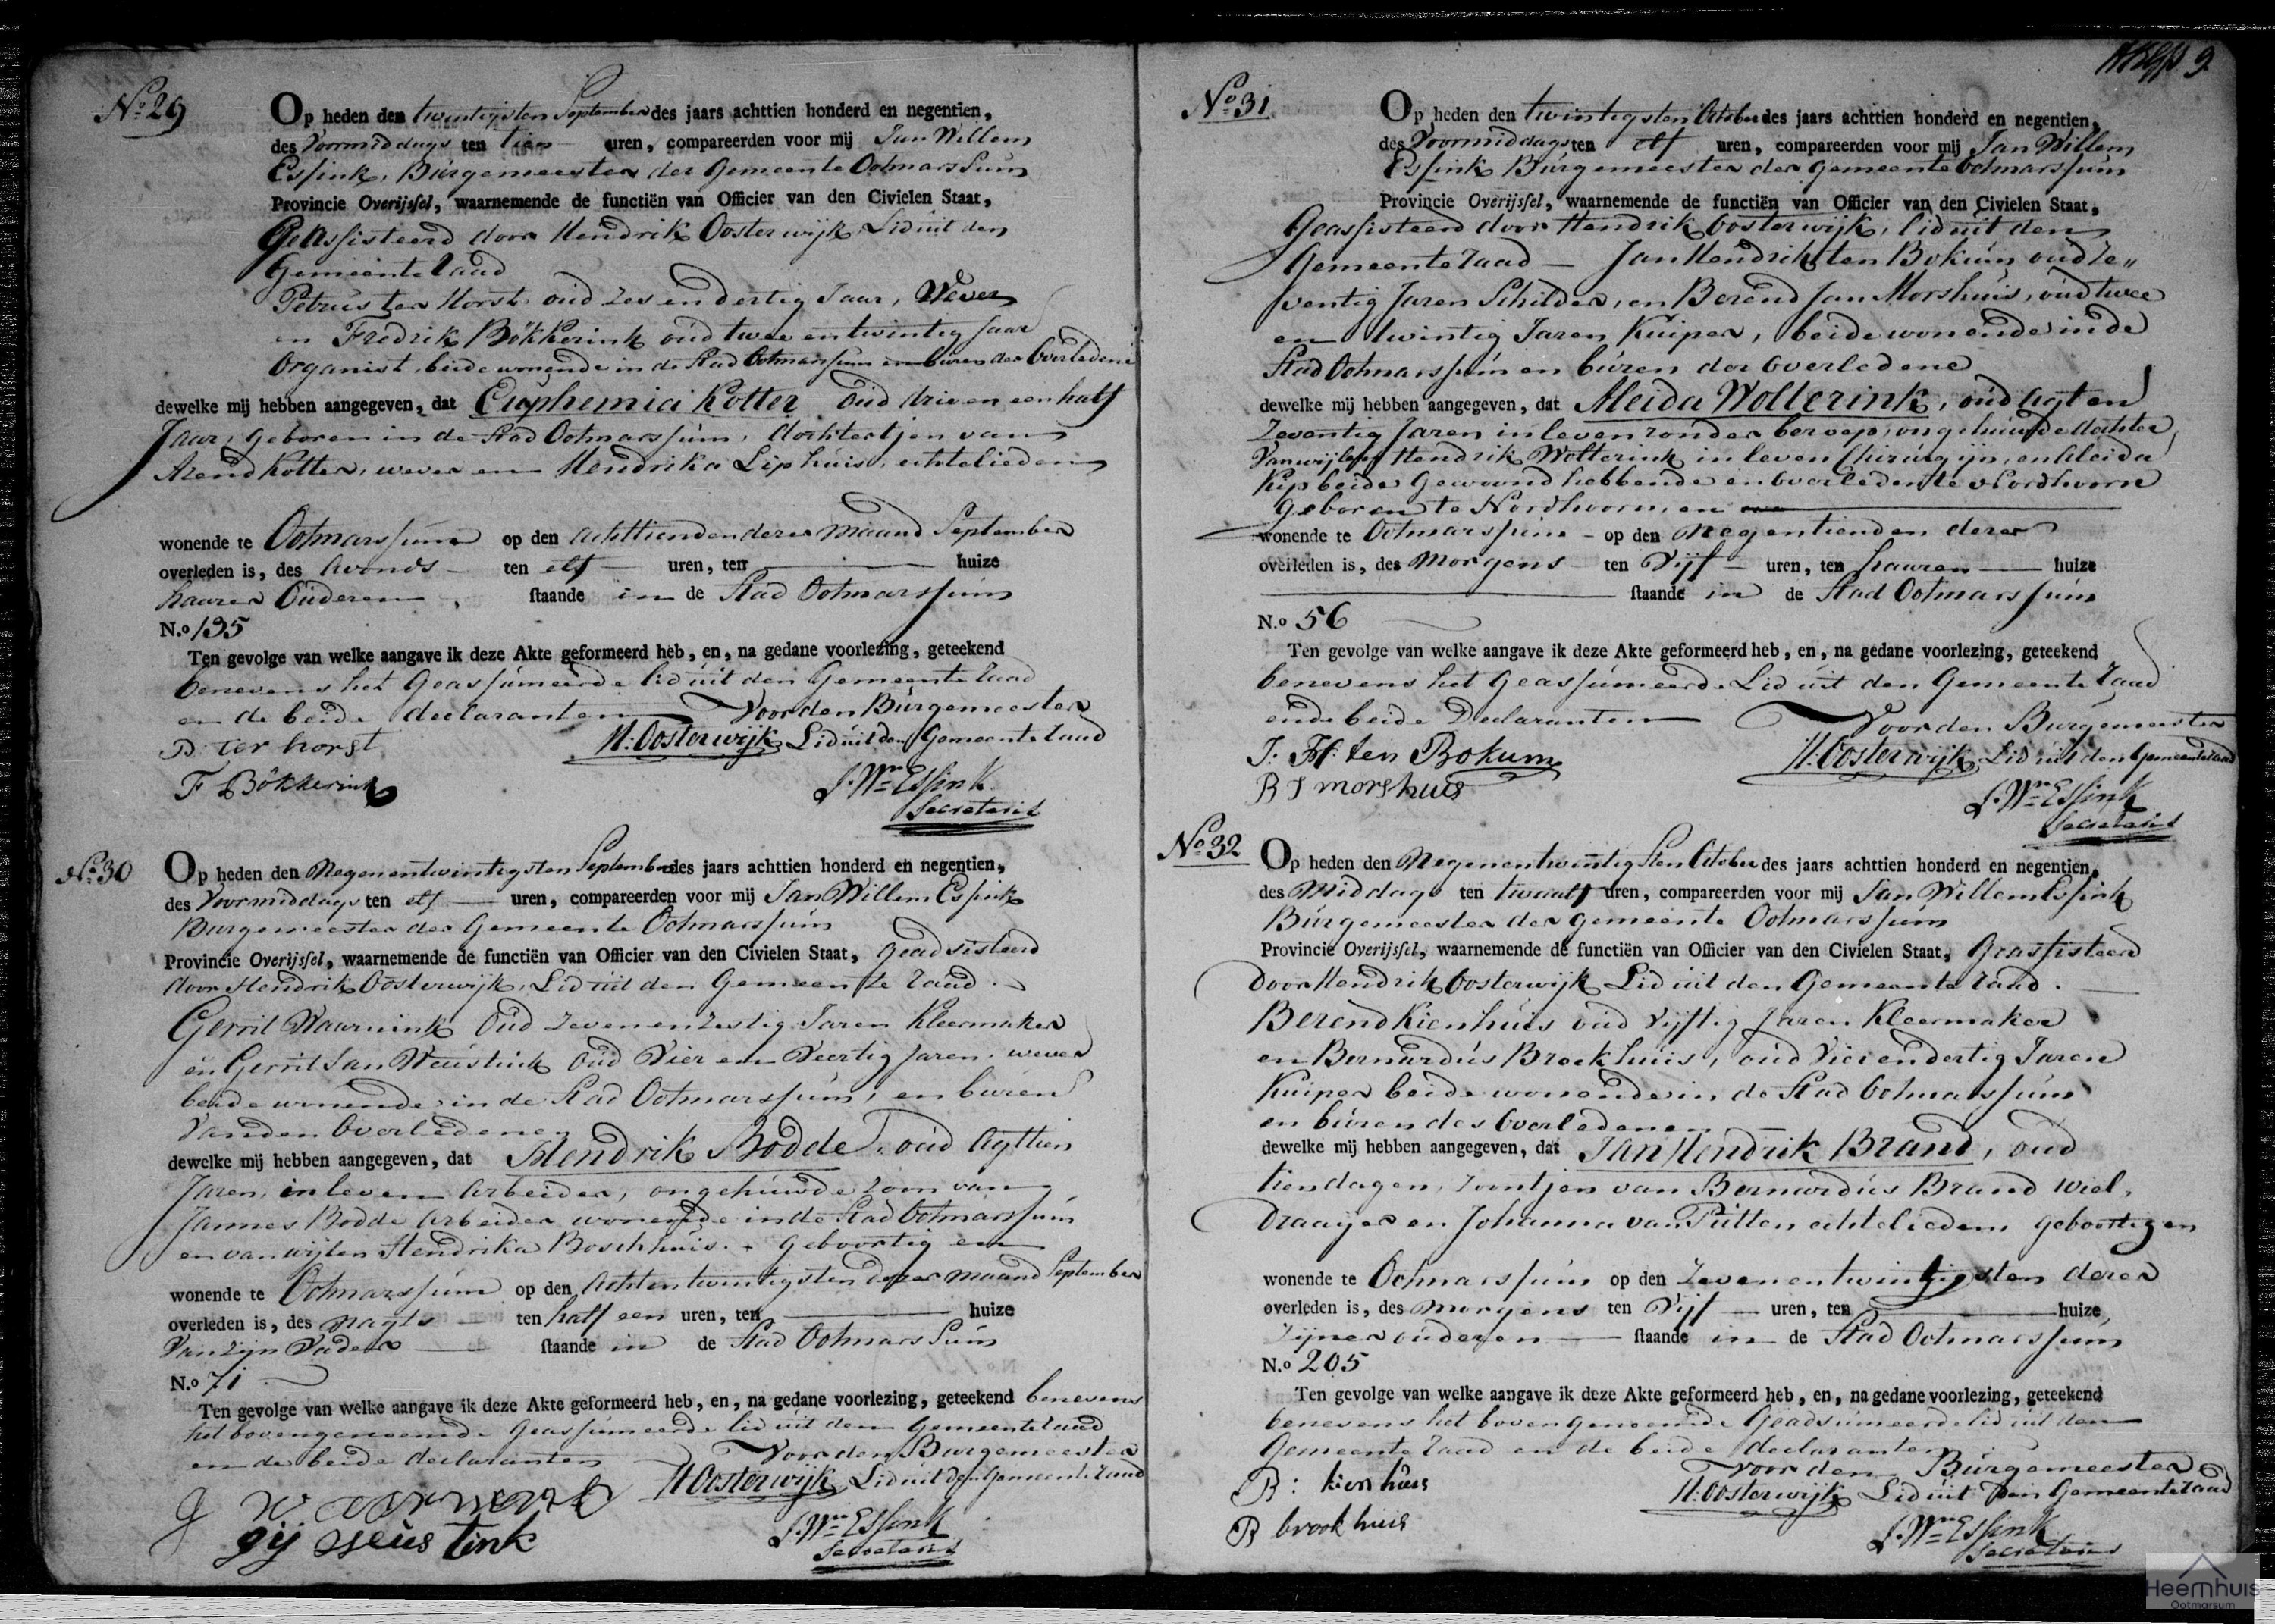 No. 29
Op heden den twintigsten September des jaars achttien honderd en negentien,
des Voormiddags ten tien uren, compareerden voor mij Jan Willem
Essink, Burgemeester der Gemeente Ootmarssum
Provincie Overijssel, waarnemende de functiën van Officier van den Civielen Staat,
Geassisteerd door Hendrik Oosterwijk, Lid uit den
Gemeente Raad
Petrus ter Horst oud zes en dertig Jaar, Wever
en Fredrik Bökkerink oud twee en twintig Jaar
Organist beide wonende in de Stad Ootmarssum en buren der Overledene
dewelke mij hebben aangegeven, dat Euphemia Kotter oud drie en een half
Jaar, geboren in de Stad Ootmarssum, dochtertjen van
Arend Kotter, wever en Hendrika Liphuis, echtelieden
wonende te Ootmarssum op den achttienden dezer maand September
overleden is, des Avonds ten elf uren, ten huize
haarer Ouderen staande in de Stad Ootmarssum
N.o 195
Ten gevolge van welke aangave ik deze Akte geformeerd heb, en, na gedane voorlezing, geteekend
benevens het Geassumeerde lid uit den Gemeente Raad
en de beide declaranten Voor den Burgemeester
P: ter horst H: Oosterwijk Lid uit den Gemeente Raad
F Bökkerink J. Wm Essink
Secretaris
No. 30
Op heden den Negenentwintigsten September des jaars achttien honderd en negentien,
des Voormiddags ten elf uren, compareerden voor mij Jan Willem Essink
Burgemeester der Gemeente Ootmarssum
Provincie Overijssel, waarnemende de functiën van Officier van den Civielen Staat, Geadsisteerd
door Hendrik Oosterwijk, Lid uit den Gemeente Raad.
Gerrit Waarmink Oud zevenenzestig Jaren Kleermaker
en Gerrit Jan Neustink Oud Vier en Veertig Jaren, wever
beide wonende in de Stad Ootmarssum, en buren
Van den Overledenen
dewelke mij hebben aangegeven, dat Hendrik Bodde, oud Agttien
Jaren, in leven Arbeider, ongehuwde zoon van
Jannes Bodde Arbeider wonende in de Stad Ootmarssum
en van wijlen Hendrika Boschhuis. Geboortig en
wonende te Ootmarssum op den Achtentwintigsten dezer maand September
overleden is, des nagts ten half een uren, ten huize
Van zijn Vader staande in de Stad Ootmarssum
N.o 71
Ten gevolge van welke aangave ik deze Akte geformeerd heb, en, na gedane voorlezing, geteekend benevens
het bovengenoemde Geassumeerde lid uit den Gemeente Raad
en de beide declaranten Voor den Burgemeester
H Oosterwijk Lid uit den Gemeente Raad
G Waarmink
J. Wm Essink
Secretaris
No. 31
9
Op heden den twintigsten October des jaars achttien honderd en negentien,
des Voormiddags ten elf uren, compareerden voor mij Jan Willem
Essink Burgemeester der Gemeente Ootmarssum
Provincie Overijssel, waarnemende de functiën van Officier van den Civielen Staat,
Geassisteerd door Hendrik Oosterwijk, lid uit den
Gemeente Raad — Jan Hendrik ten Bokum oud Ze„
ventig Jaren Schilder, en Berend Jan Morshuis, oud twee
en twintig Jaren Kuiper, beide wonende in de
Stad Ootmarssum en buren der Overledene
dewelke mij hebben aangegeven, dat Aleida Wolterink, oud Agt en
Zeventig Jaren in leven zonder beroep, ongehuwde dochter
Van wijlen Hendrik Wolterink in leven Chirurgijn, en Aleida
Kip beide gewoond hebbende en overleden te Nordhoorn
geboren te Nordhoorn, en
wonende te Ootmarssum op den Negentienden dezer
overleden is, des Morgens ten Vijf uren, ten haaren huize
staande in de Stad Ootmarssum
N.o 56
Ten gevolge van welke aangave ik deze Akte geformeerd heb, en, na gedane voorlezing, geteekend
benevens het Geassumeerde Lid uit den Gemeente Raad
en de beide Declaranten Voor den Burgemeester
J: H: ten Bokum H: Oosterwijk Lid uit den Gemeente Raad
B J morshuis J. Wm Essink
Secretaris
No. 32
Op heden den Negenentwintigsten October des jaars achttien honderd en negentien,
des Middags ten twaalf uren, compareerden voor mij Jan Willem Essink
Burgemeester der Gemeente Ootmarssum
Provincie Overijssel, waarnemende de functiën van Officier van den Civielen Staat, Geassisteerd
door Hendrik Oosterwijk Lid uit den Gemeente Raad.
Berend Kienhuis oud Vijftig Jaren Kleermaker
en Bernardus Broekhuis, oud Vier en dertig Jaren
Kuiper beide wonende in de Stad Ootmarssum
en buren des Overledenen
dewelke mij hebben aangegeven, dat Jan Hendrik Brand, oud
tien dagen, zoontjen van Bernardus Brand Wiel„
draaijer en Johanna van Putten echtelieden geboortig en
wonende te Ootmarssum op den Zevenentwintigsten dezer
overleden is, des morgens ten Vijf uren, ten huize
zijner ouderen staande in de Stad Ootmarssum
N.o 205
Ten gevolge van welke aangave ik deze Akte geformeerd heb, en, na gedane voorlezing, geteekend
benevens het bovengenoemde Geadsumeerde lid uit den
Gemeente Raad en de beide declaranten
Voor den Burgemeester
B: kienhuis H: Oosterwijk Lid uit den Gemeente Raad
B brookhuis J. Wm Essink
Secretaris
Heemhuis
Ootmarsum